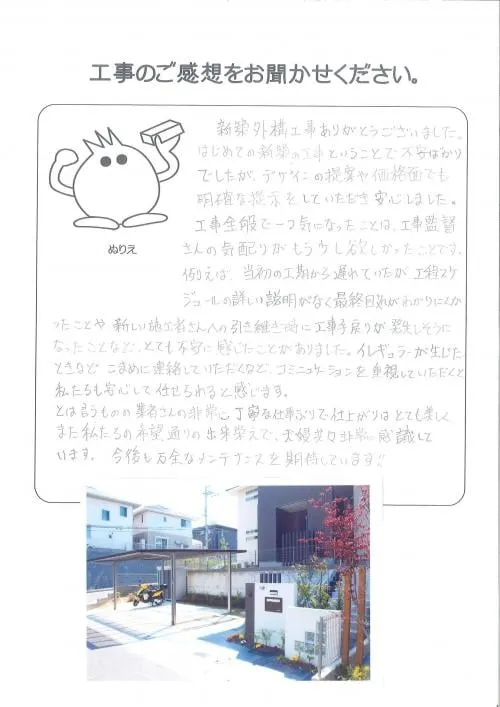 工事のご感想をお聞かせください。
新築外構工事ありがとうございました。
はじめての新築の工事ということで不安ばかり
でしたが、デザインの提案や価格面でも
明確な提示をしていただき安心しました。
工事全般で一つ気になったことは、工事監督
さんの気配りがもう少し欲しかったことです。
例えば、当初の工期から遅れていたが工程スケ
ジュールの詳しい説明がなく最終日気がわかりにくか
ぬりえ
ったことや新しい施工者さんへの引き継ぎ時に工事手戻りが発生しそうに
なったことなど、とても不安に感じたことがありました。イレギュラーが生じた
ときなどこまめに連絡していただくなど、コミニュケーションを重視していただくと
私たちも安心して任せられると感じます。
とは言うものの業者さんの非常に丁寧な仕事ぶりで仕上がりはとても美しく
また私たちの希望通りの出来栄えで、夫婦共々非常に感謝して
います。今後も万全なメンテナンスを期待しています!!